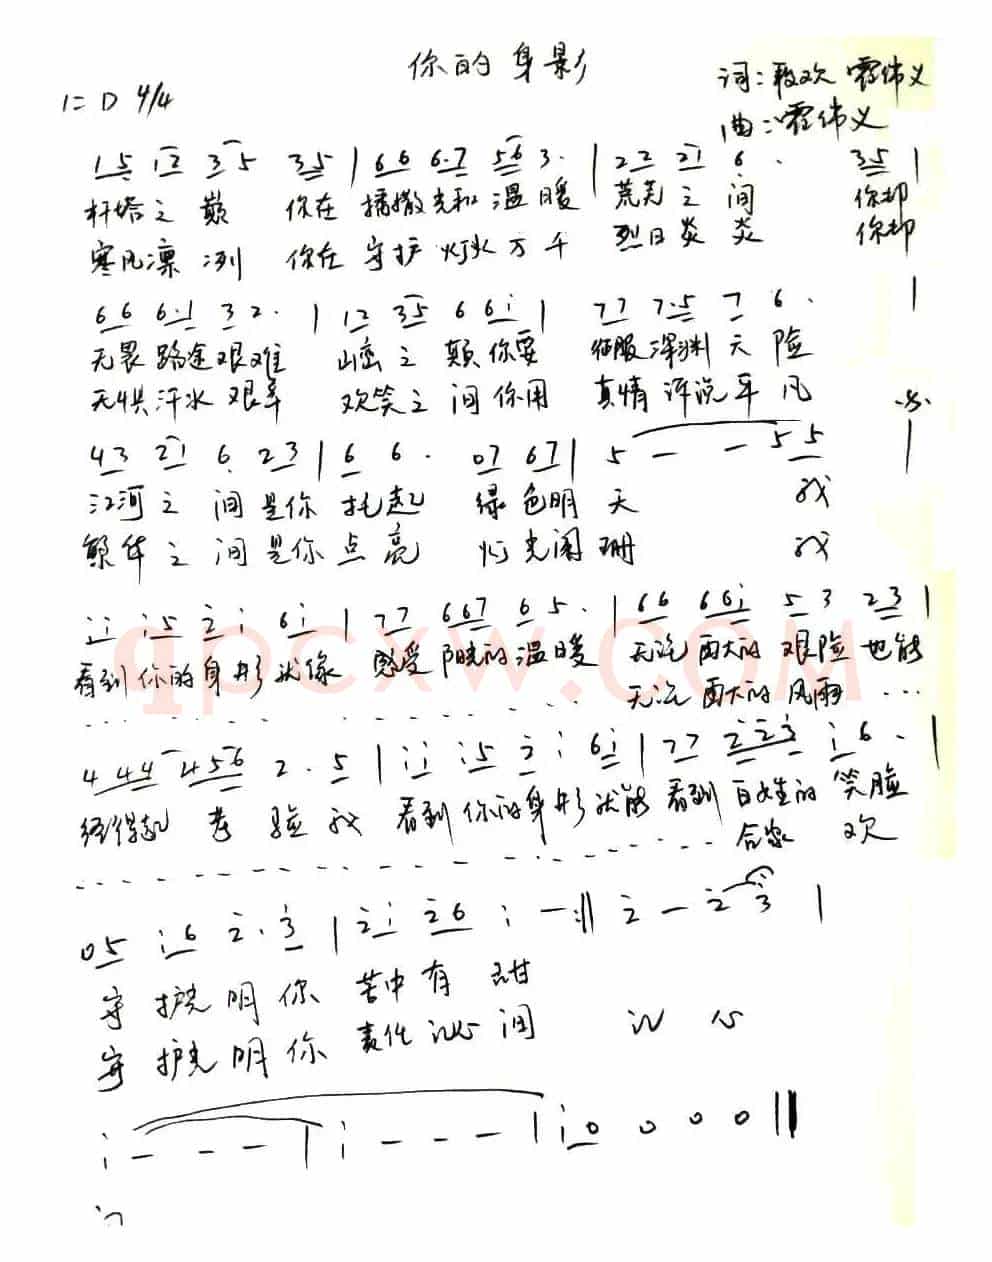 你的身影
词:段欢 霍伟义
1=D 4/4
曲:霍伟义
1 5 1 2 3 5 3 5 | 6 6 6·7 5 6 3· | 2 2 2 1 6· 3 5 |
杆塔之巅 你在播撒光和温暖 荒芜之间 你却
寒风凛冽 你在守护灯火万千 烈日炎炎 你却
6 6 6·1 3 2· | 1 2 3 5 6 6 i | 7 7 7·5 7 6· |
无畏路途艰难 山峦之颠你要征服深渊天险
无惧汗水艰辛 欢笑之间你用真情诉说平凡
4 3 2 1 6 2 3 | 6 6· 0 7 6 7 | 5 — — 5 5 |
江河之间是你托起 绿色明天 我
繁华之间是你点亮 灯光阑珊 我
i i i 5 2 i 6 i | 7 7 6 6 7 6 5· | 6 6 6 6 i 5 3 2 3 |
看到你的身影就像 感受阳光的温暖 无论再大的艰险也能
无论再大的风雨 ···
4 4 4 4 5 6 2· 5 | i i i 5 2 i 6 i | 7 7 2 2 3 i 6· |
经得起考验我 看到你的身影就能看到百姓的笑脸
合家 欢
0 5 i 6 2· 3 | 2 i 2 6 i — :‖ 2 — 2 3 |
守护光明你 苦中有甜
守护光明你 责任沁润 沁 心
i — — — | i — — — | i 0 0 0 0 ‖